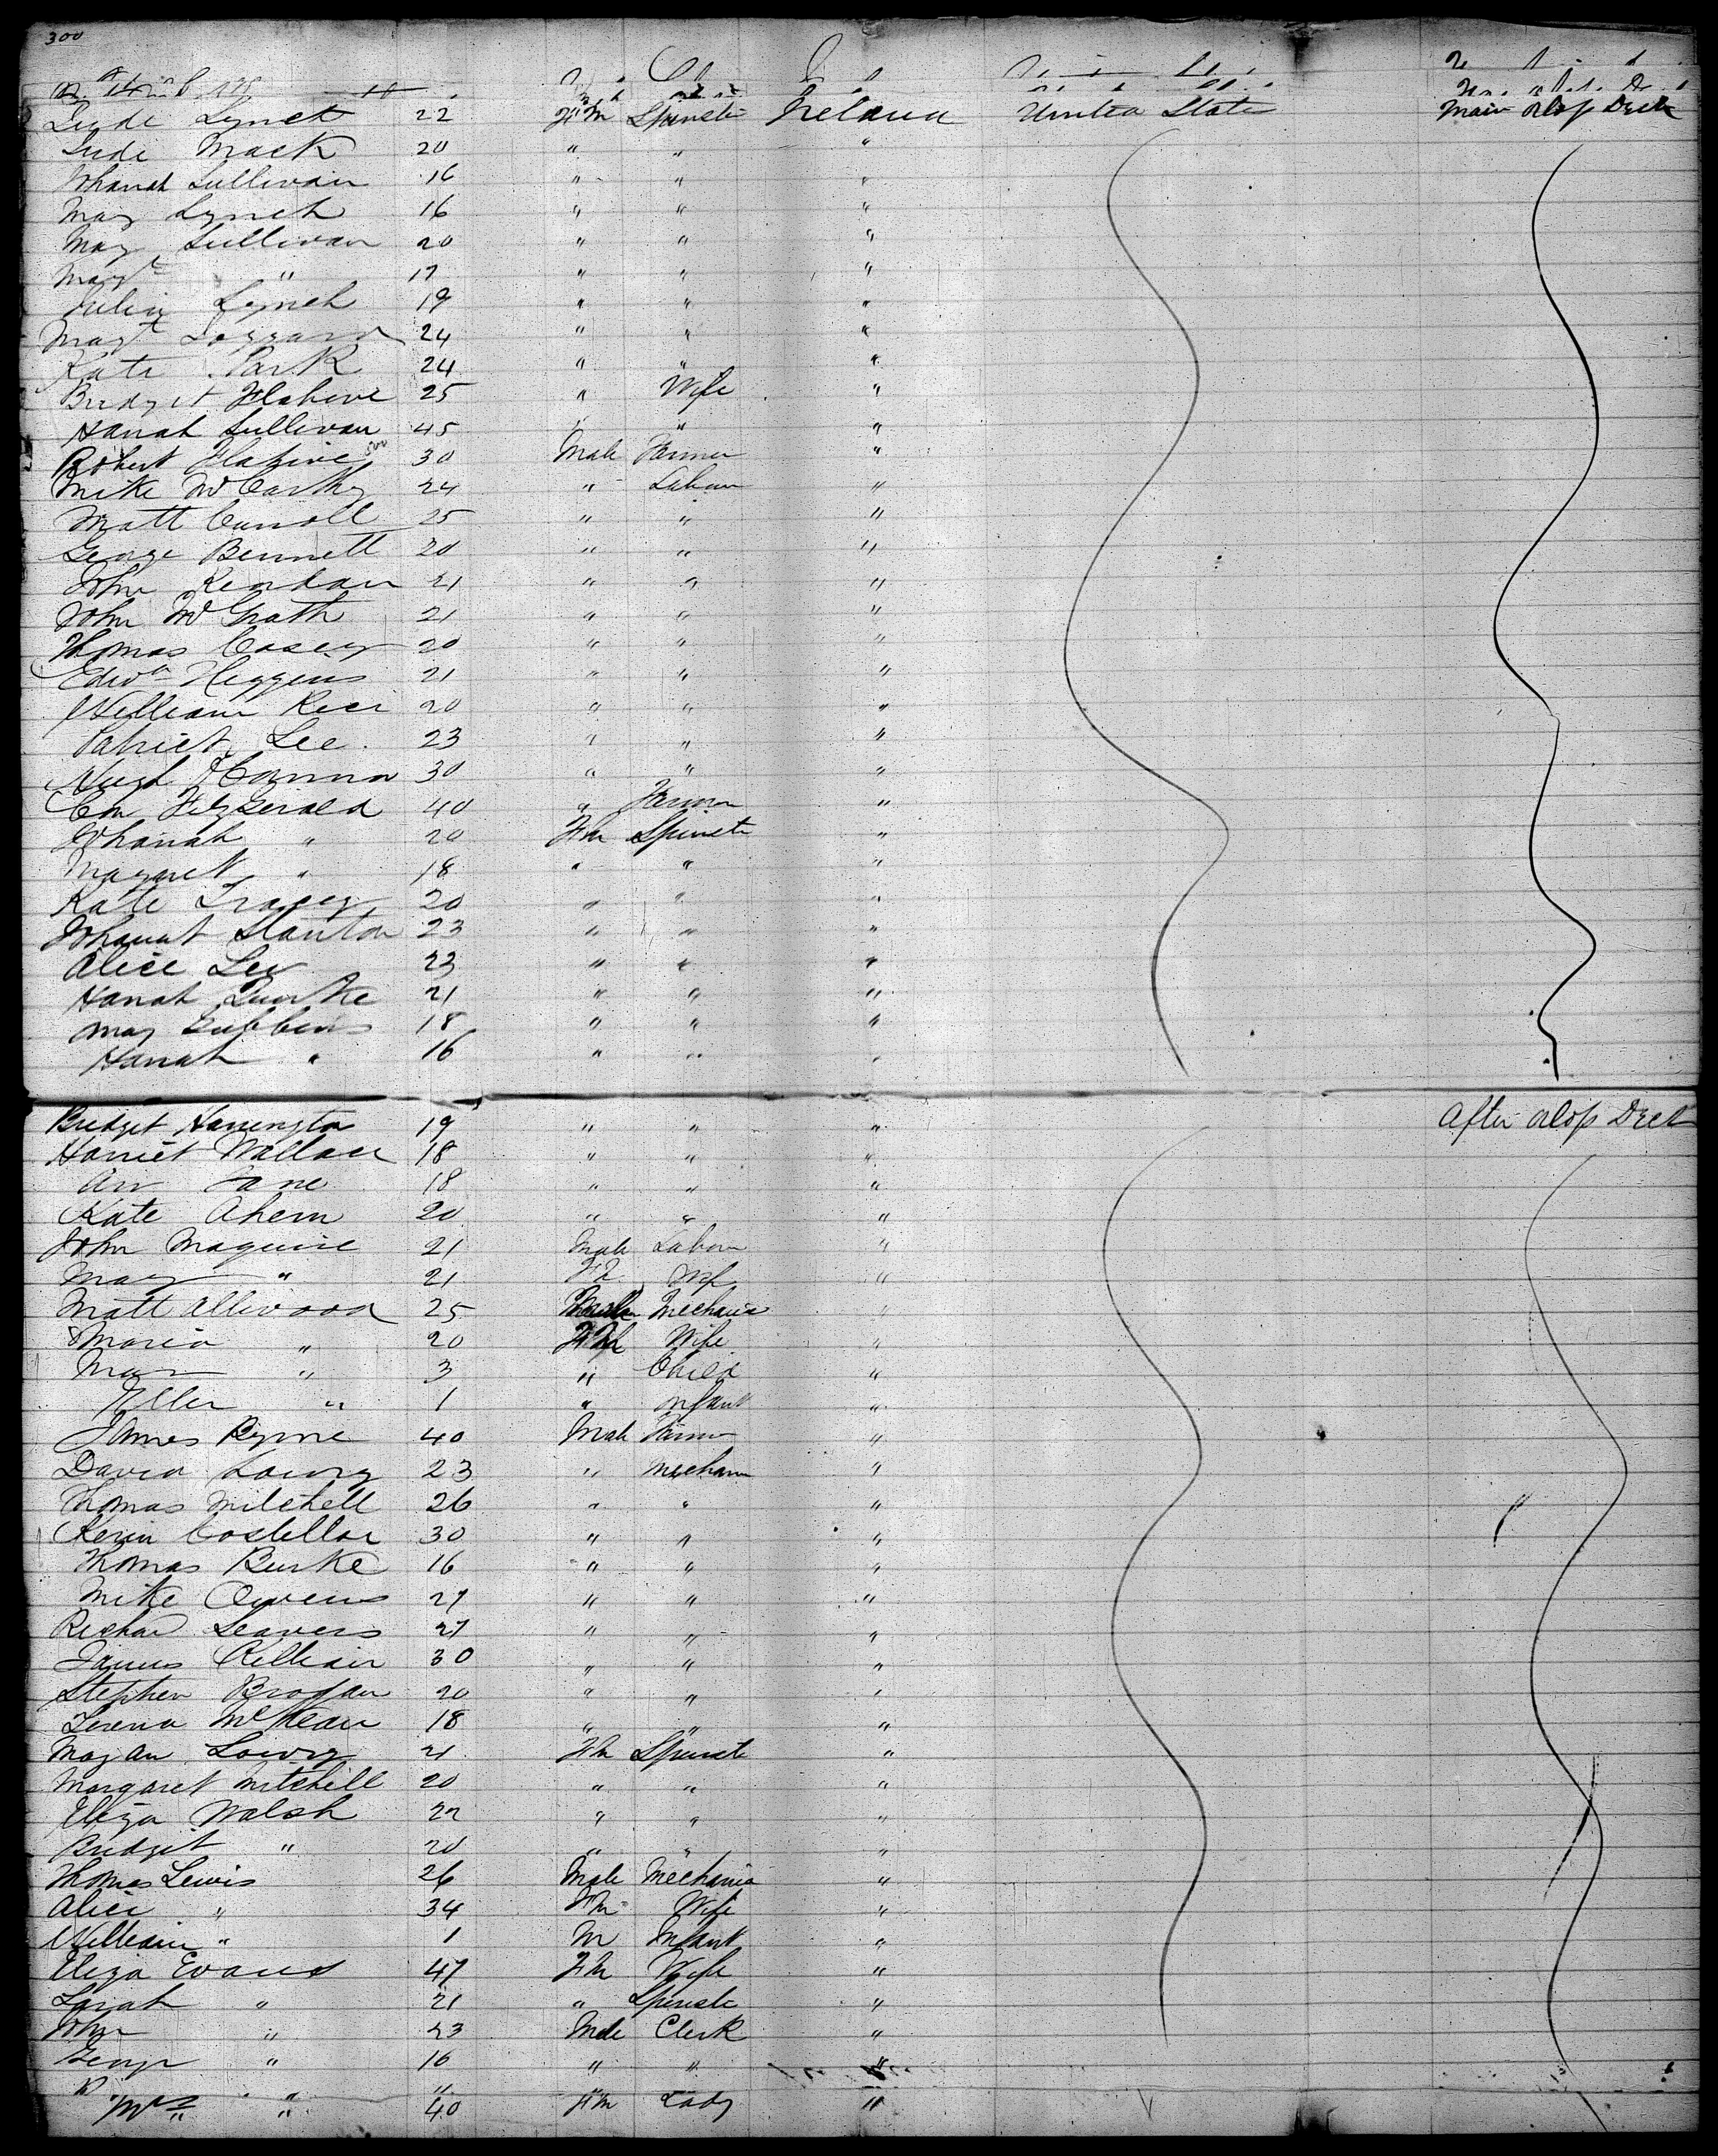 300
Lynch 22 Fm Spinste Ireland United State Main Orlop Deck
Mack 20 " " "
Johanah Sullivan 16 " " "
May Lynch 16 " " "
May Sullivan 20 " " "
Magt " 17 " " "
Julia Lynch 19 " " "
Magt 24 " " "
Kate 24 " " "
Bridget 25 " Wife "
Hanah Sullivan 45 " " "
Robert 30 Male Farmer "
Mike McCarthy 24 " Labour "
Matt Carroll 25 " " "
George Bennett 20 " " "
John 21 " " "
John McGrath 21 " " "
Thomas Casey 20 " " "
Edwd Higgins 21 " " "
William Rice 20 " " "
Patrick Lee 23 " " "
Hugh 30 " " "
Con FitzGerald 40 " Farmer "
Johanah " 20 Fm Spinste "
Margaret " 18 " " "
Kate Tracey 20 " " "
Johanah Stanton 23 " " "
Alice Lee 23 " " "
Hanah Quirke 21 " " "
May Gubbins 18 " " "
Hanah " 16 " " "
Bridget 19 " " " After Orlop Deck
Harriet Wallace 18 " " "
Ann Jane 18 " " "
Kate Ahern 20 " " "
John Maguire 21 Male Labour "
May " 21 Wife "
Matt Allwood 25 Mechanic "
Maria " 20 Wife "
May " 3 " Child "
Ellen " 1 " Infant "
James Byrne 40 Male Farmer "
David Lowry 23 " Mechani "
Thomas Mitchell 26 " " "
Kevin Costelloe 30 " " "
Thomas Burke 16 " " "
Mike Owens 27 " " "
Richard Leavers 27 " " "
James Killian 30 " " "
Stephen Brogan 20 " " "
McKean 18 " " "
May An Lowry 21 Fm Spinste "
Margaret Mitchell 20 " " "
Eliza Walsh 22 " " "
Bridget " 20 " " "
Thomas Lewis 26 Male Mechanic "
Alice " 34 Fm Wife "
William " 1 M Infant "
Eliza Evans 47 Fm Wife "
Sarah " 21 " Spinste "
John " 23 Male Clerk "
George " 16 " " "
Mrs " 40 Fm Lady "